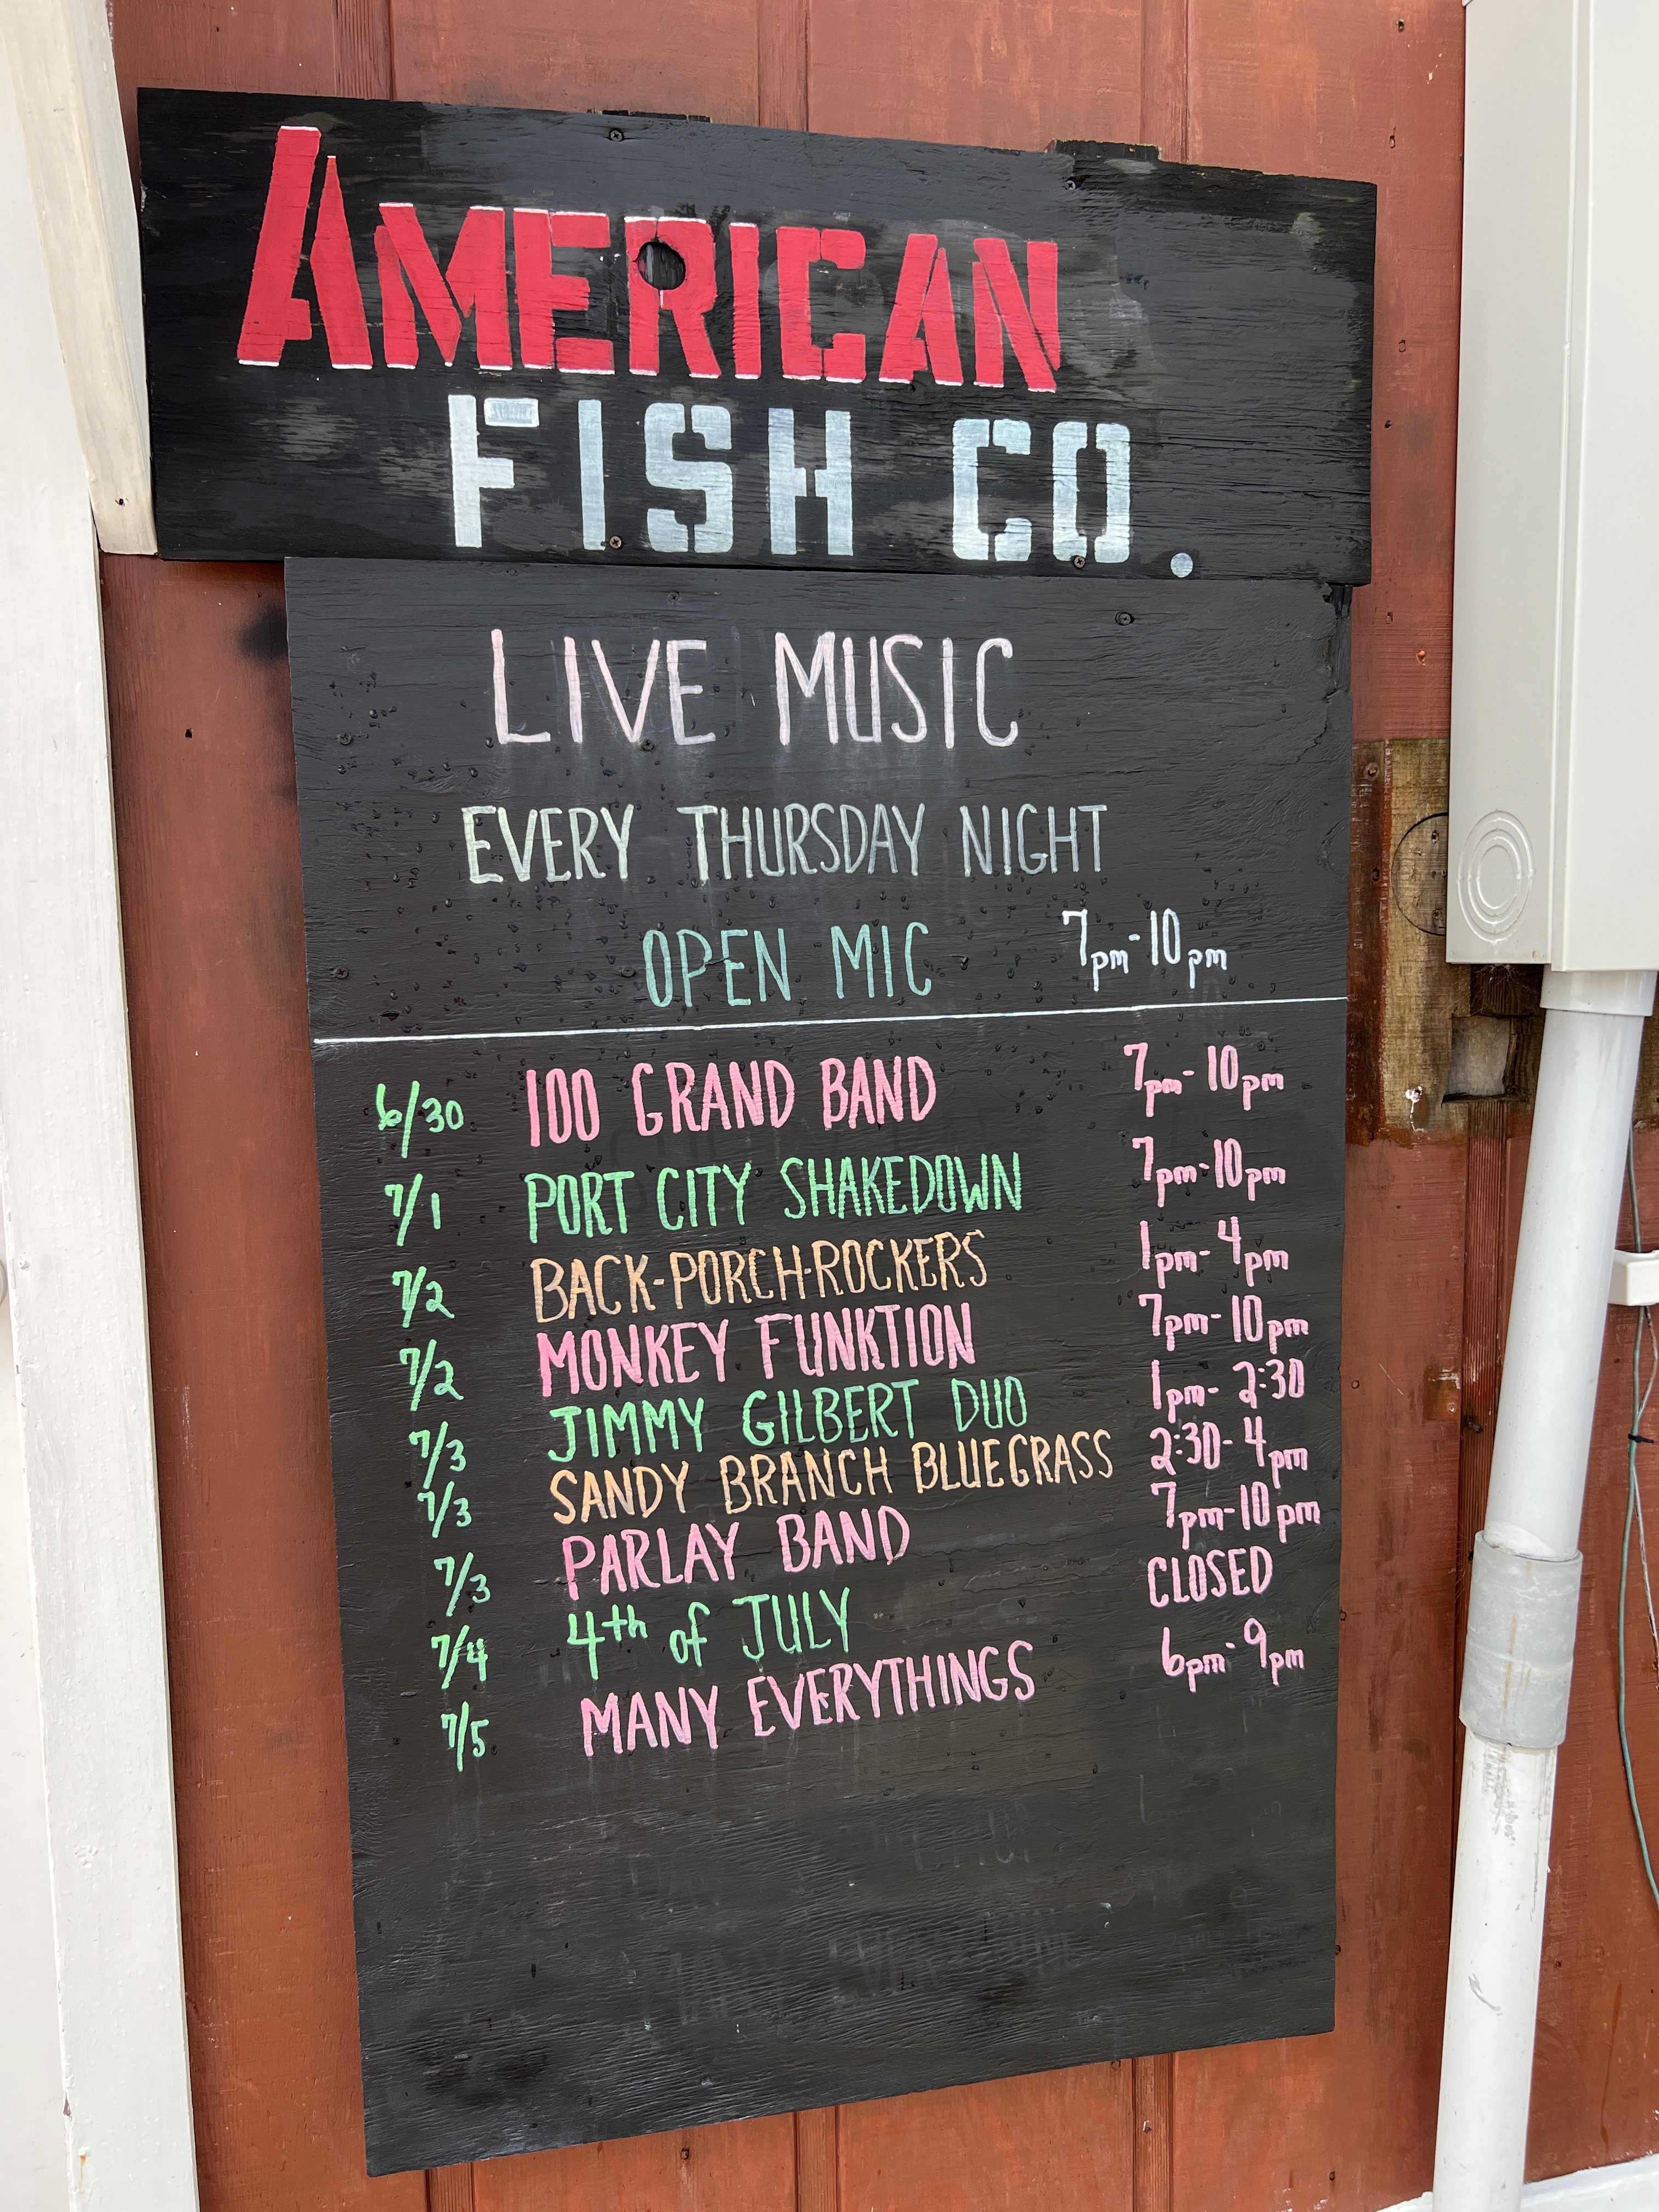 AMERICAN
FISH CO.
LIVE MUSIC
EVERY THURSDAY NIGHT
OPEN MIC 7pm-10pm
6/30 100 GRAND BAND 7pm-10pm
7/1 PORT CITY SHAKEDOWN 7pm-10pm
7/2 BACK-PORCH-ROCKERS 1pm-4pm
7/2 MONKEY FUNKTION 7pm-10pm
7/3 JIMMY GILBERT DUO 1pm-2:30
7/3 SANDY BRANCH BLUEGRASS 2:30-4pm
7/3 PARLAY BAND 7pm-10pm
7/4 4th of JULY CLOSED
7/5 MANY EVERYTHINGS 6pm-9pm